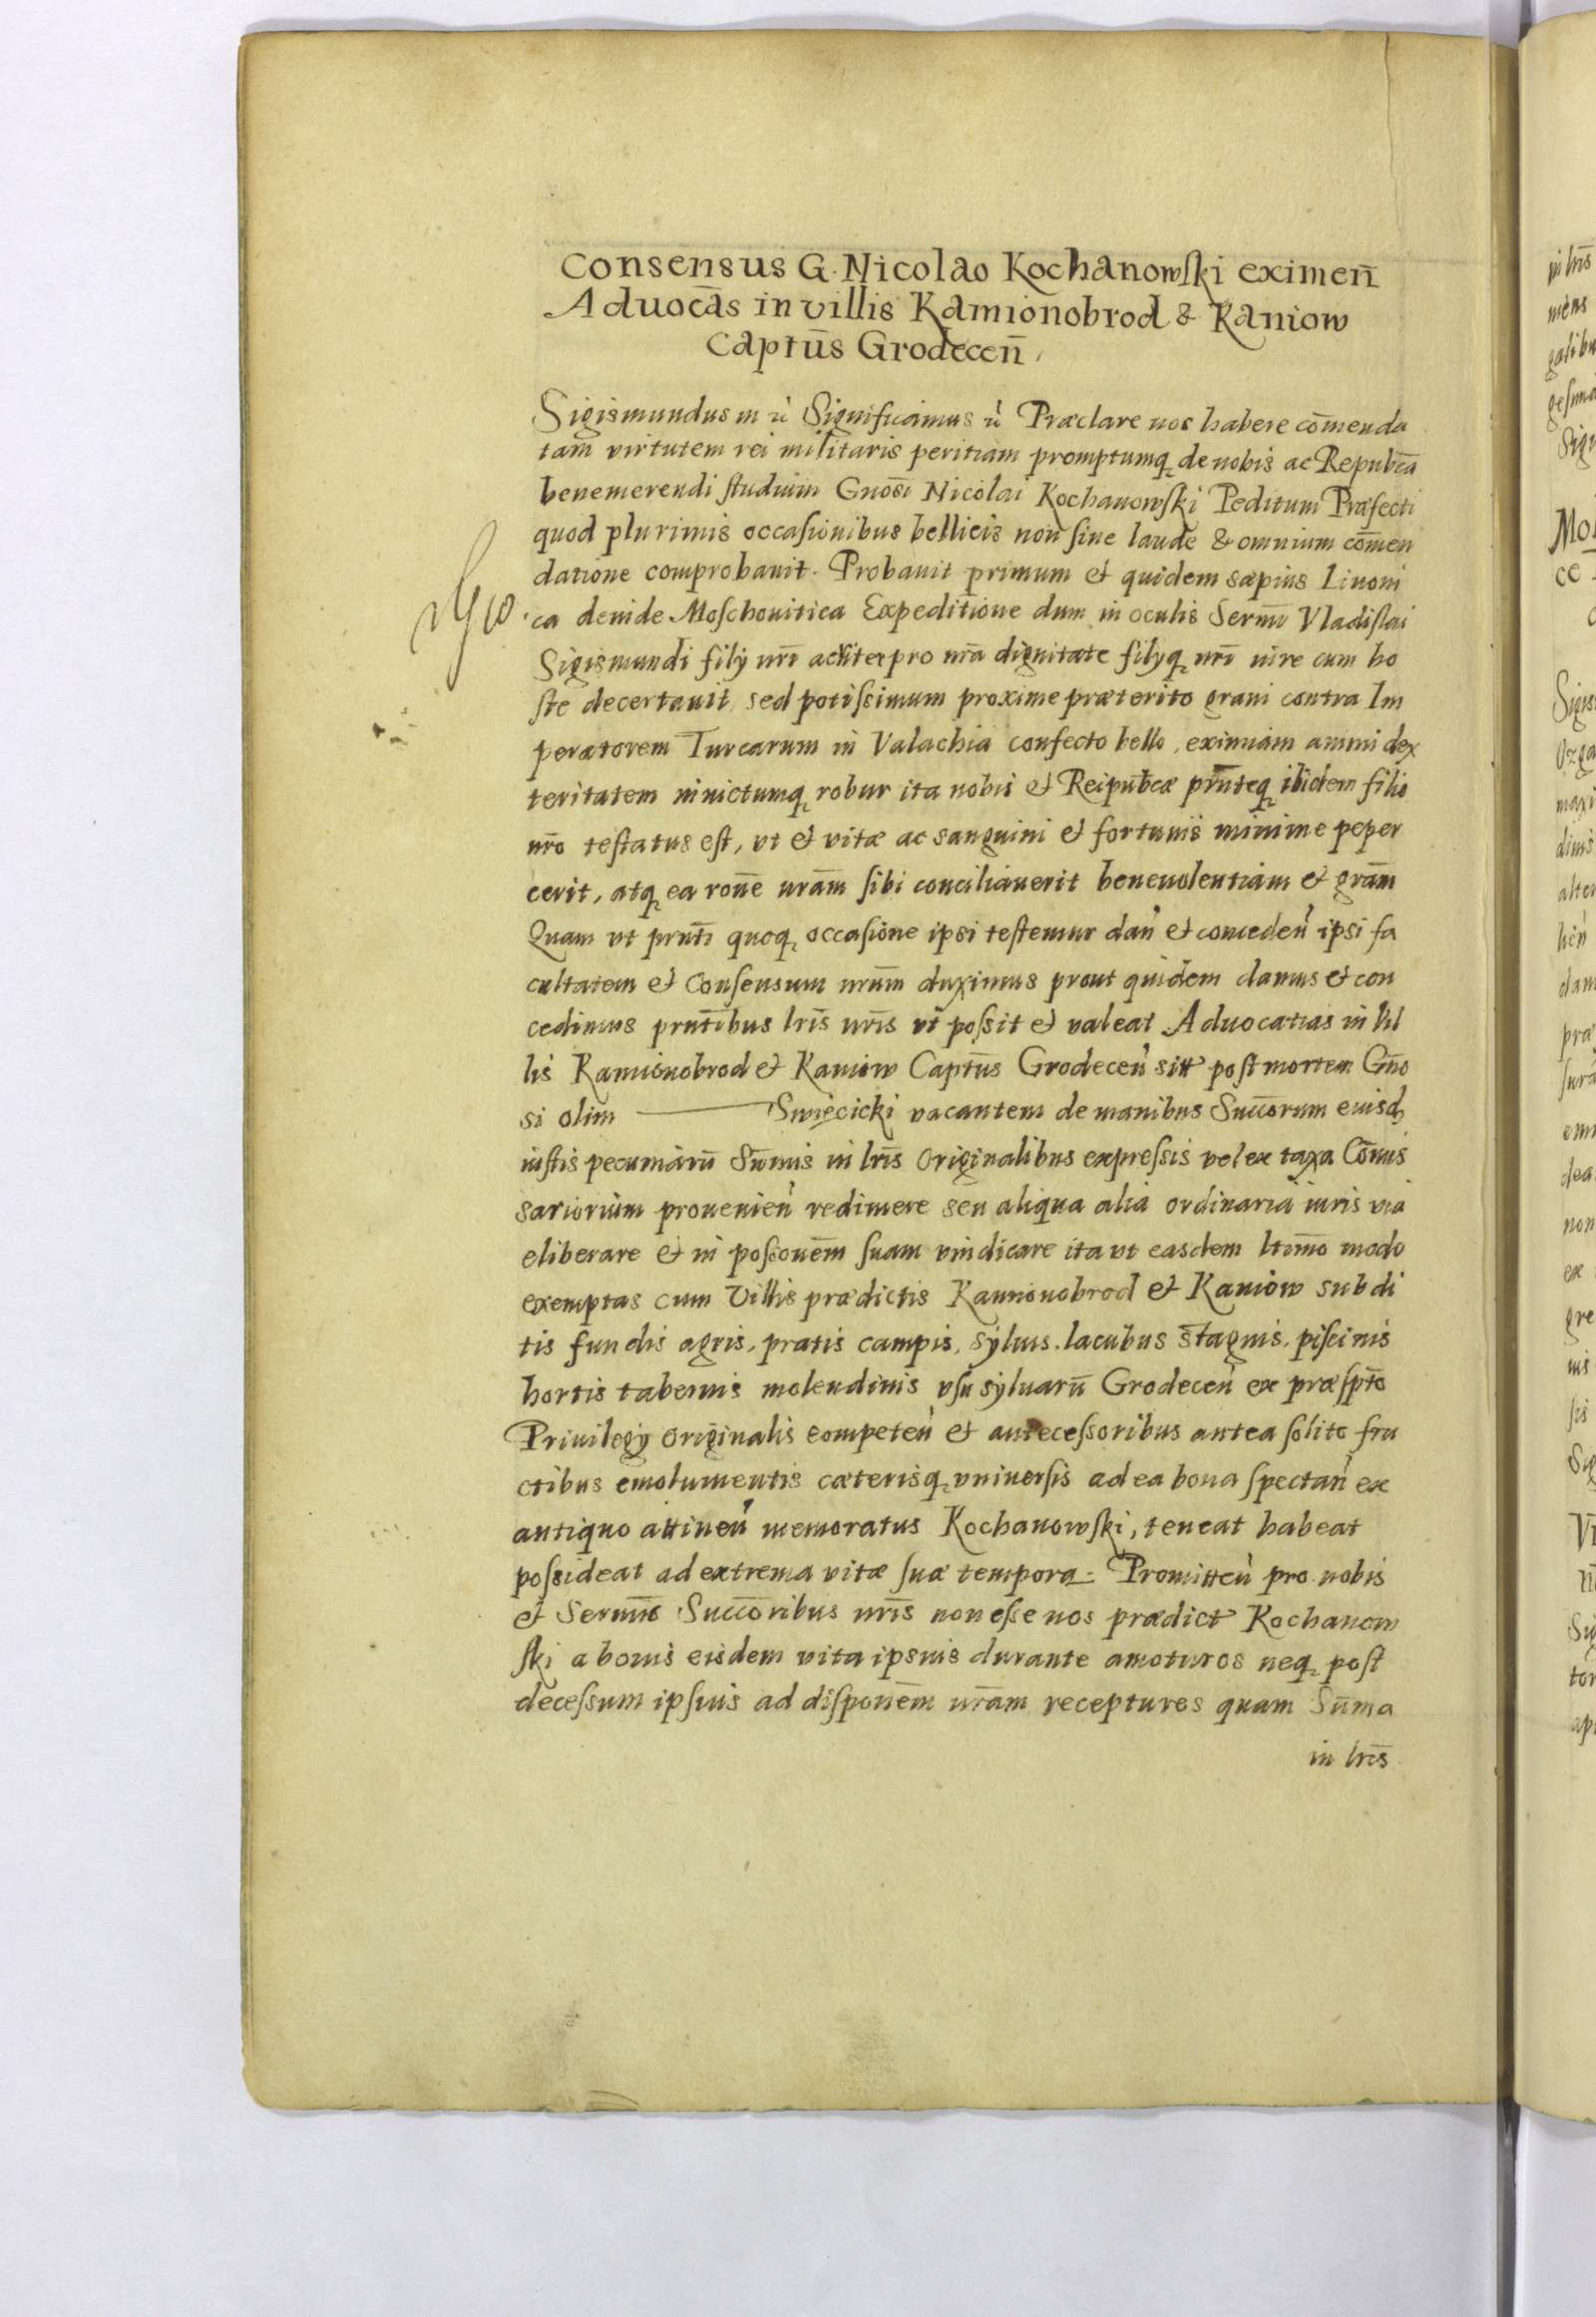 Consensus G. Nicolao Kochanowſki eximen̄
Aduocās in villis Kamionobrod & Kaniow
Captūs Grodecen̄.
Sigismundus m Significamus Præclare nos habere cōmenda
tam virtutem rei militaris peritiam promptumq de nobis ac Repubca
benemerendi ſtudium Gnōsi Nicolai Kochanowſki Peditum Præfecti
quod plurimis occaſionibus bellicis non ſine laude & omnium cōmen
datione comprobauit. Probauit primum et quidem sæpius Liuoni
ca deinde Moſchouitica Expeditione dum in oculis Sermi Vladiſlai
Sigismundi filÿ nr̄i acriter pro nr̄a dignitate filÿq nr̄i iure cum ho
ſte decertauit, sed potiſsimum proxime præterito graui contra Im
peratorem Turcarum in Valachia confecto bello, eximiam animi dex
teritatem inuictumq robur ita nobis et Reipubcæ prn̄teq ibidem filio
nr̄o teſtatus eſt, vt et vitæ ac sanguini et fortunis minime peper
cerit, atq ea ron̄e nr̄am ſibi conciliauerit beneuolentiam et gr̄am
Quam vt prn̄ti quoq occaſione ipsi teſtemur dan̄ et conceden̄ ipsi fa
cultatem et Conſensum nr̄um duximus prout quidem damus et con
cedimus prn̄tibus lr̄is nr̄is vt poſsit et valeat Aduocatias in Vil
lis Kamionobrod et Kaniow Captūs Grodecen̄ sitt poſt mortem Gn̄o
si olim ——— Swięcicki vacantem de manibus Succorum eiusd
iuſtis pecuniarū Sūmis in lr̄is Originalibus expreſsis vel ex taxa Cōmis
sariorium prouenien̄ redimere seu aliqua alia ordinaria iuris via
eliberare et in poſsonēm ſuam vindicare ita vt easdem ltīmo modo
exemptas cum Villis prædictis Kamionobrod et Kaniow subdi
tis fundis agris, pratis campis, sÿluis, lacubus stagnis, piſcinis
hortis tabernis molendinis vſu sÿluarū Grodecen̄ ex præſpto
Priuilegÿ originalis competen̄ et anteceſsoribus antea ſolito fru
ctibus emolumentis cæterisq vniuerſis ad ea bona ſpectan̄ ex
antiquo attinen̄ memoratus Kochanowſki, teneat habeat
poſsideat ad extrema vitæ ſuæ tempora. Promitten̄ pro nobis
et Sermis Succoribus nr̄is non eſse nos prædict Kochanow
ſki a bonis eisdem vita ipsius durante amoturos neq poſt
deceſsum ipſius ad diſponēm nr̄am recepturos quam Sūma
in lr̄is